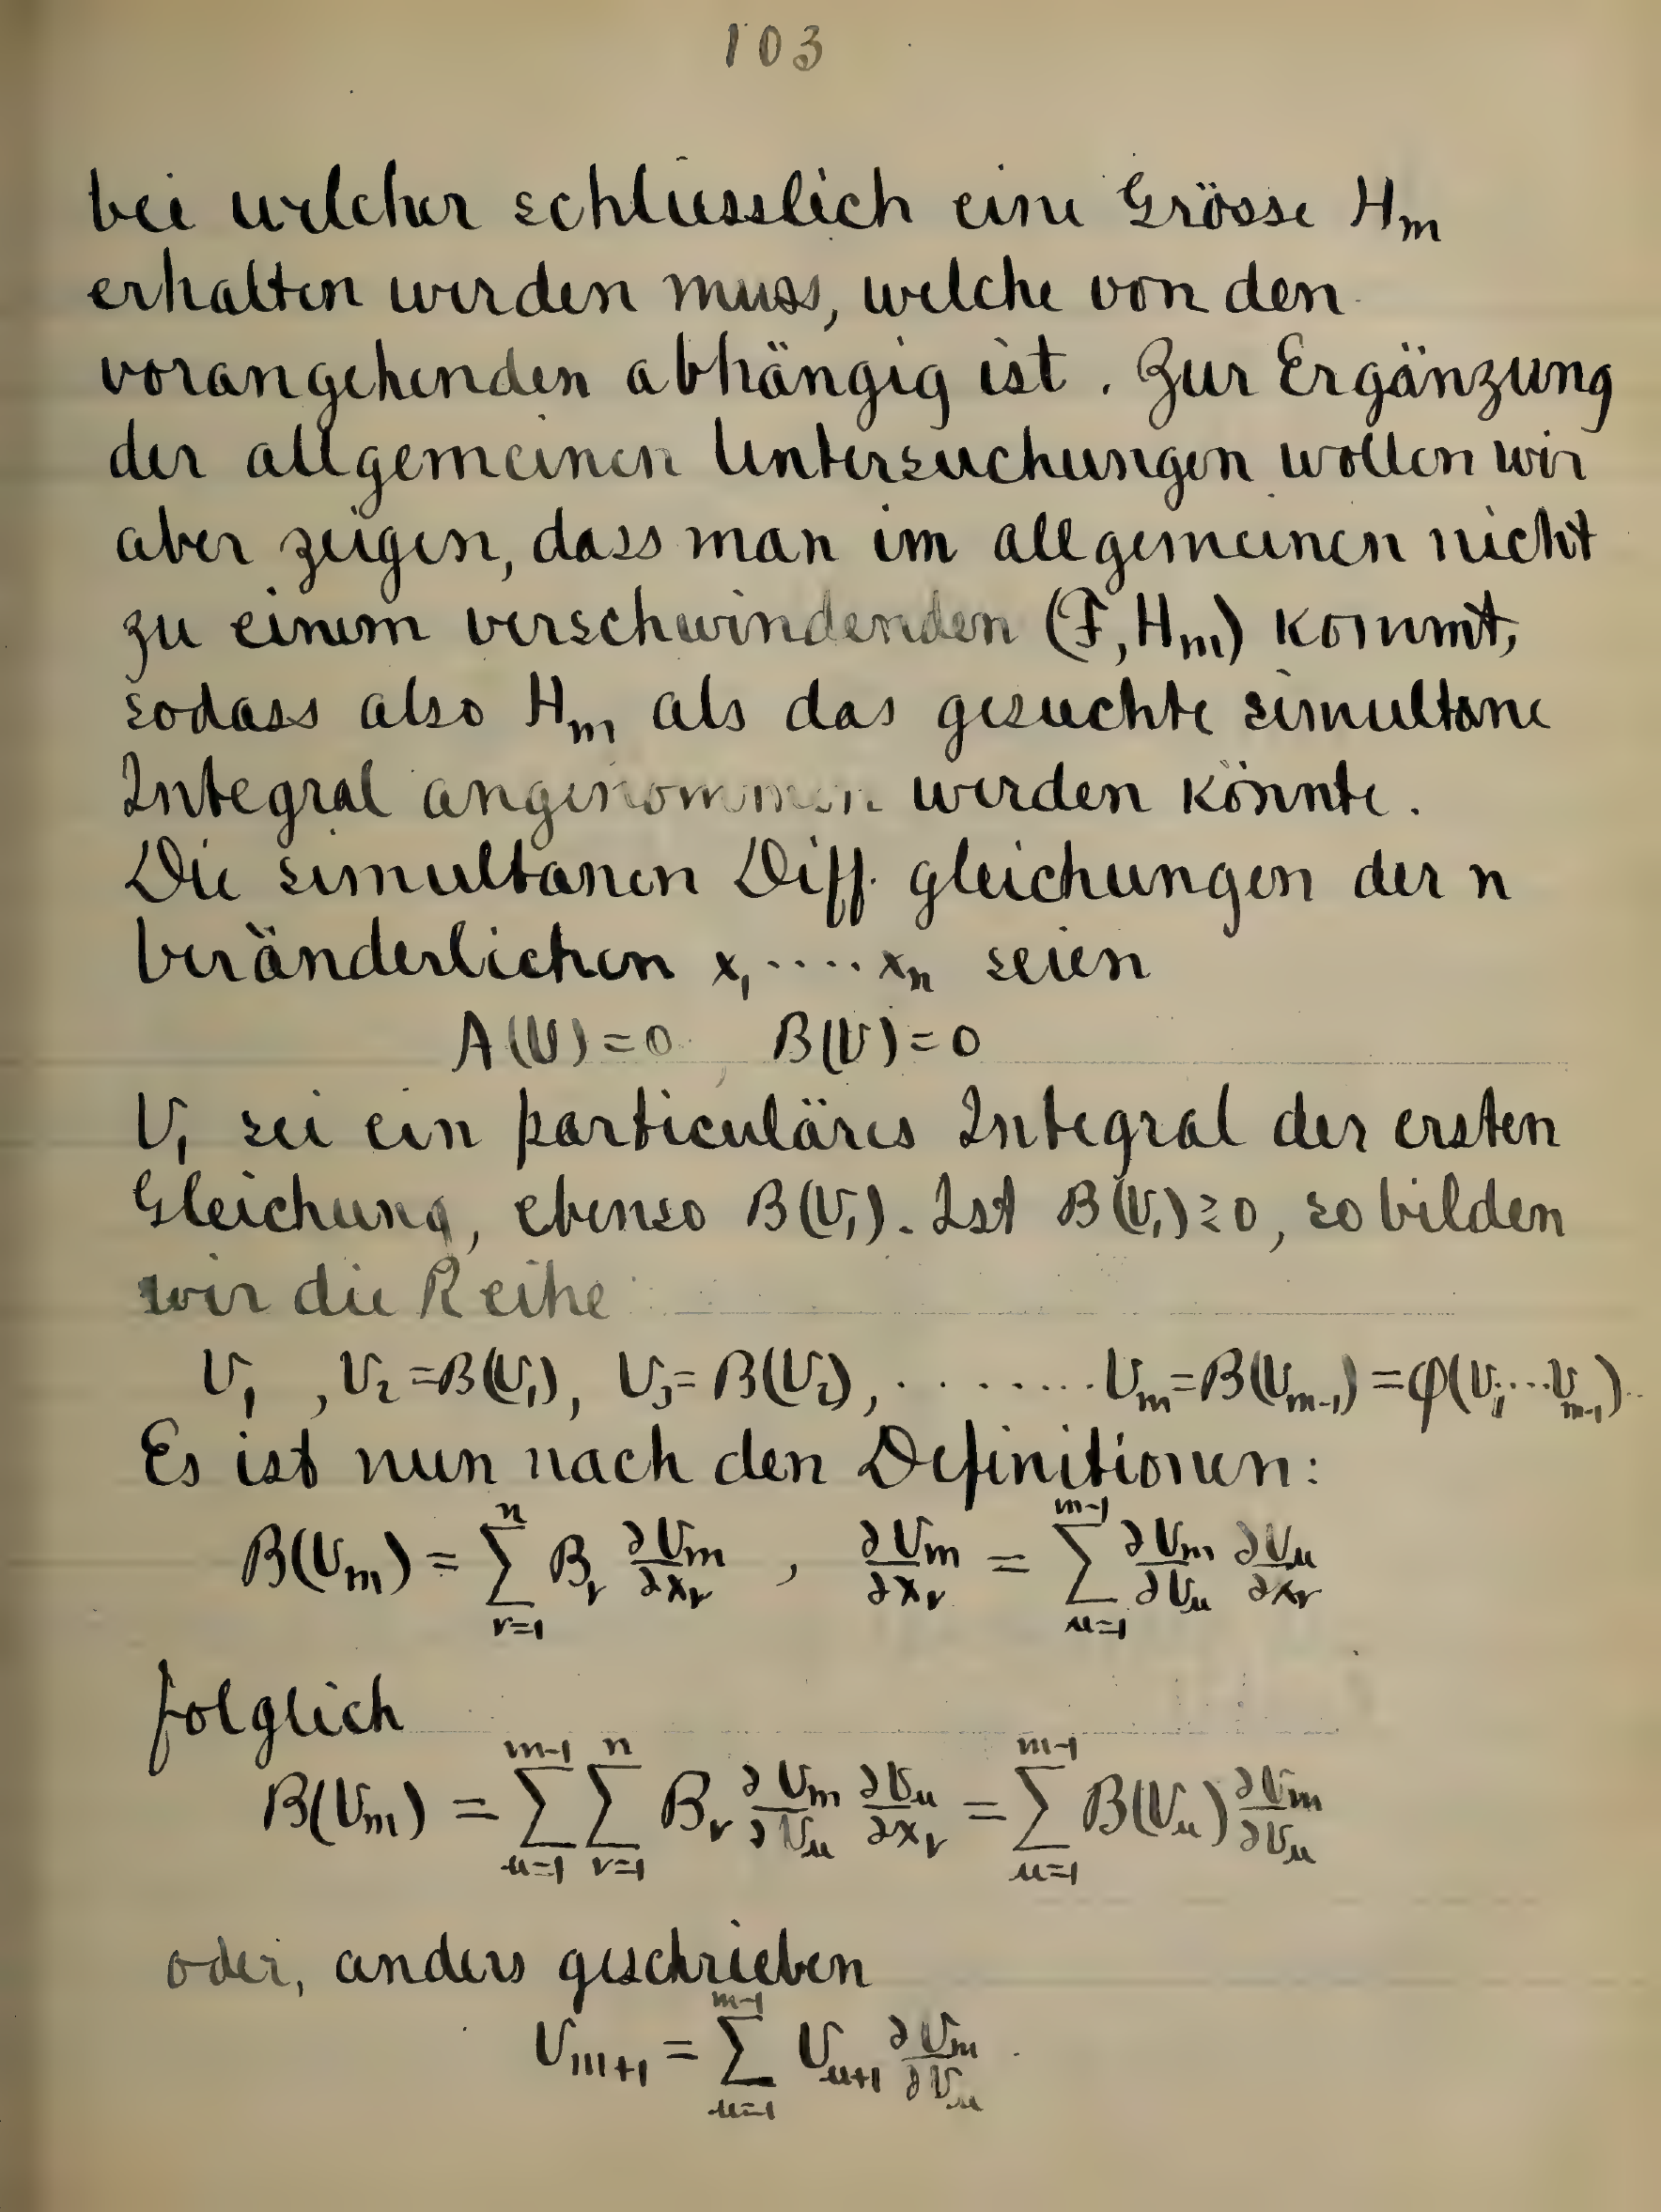 103
bei welcher schliesslich eine Grösse H_m
erhalten werden muss, welche von den
vorangehenden abhängig ist. Zur Ergänzung
der allgemeinen Untersuchungen wollen wir
aber zeigen, dass man im allgemeinen nicht
zu einem verschwindenden (F, H_m) kommt,
sodass also H_m als das gesuchte simultane
Integral angenommen werden könnte.
Die simultanen Diff. gleichungen der n
Veränderlichen x_1 ····x_n seien
A(U)=0, B(U)=0
U_1 sei ein particuläres Integral der ersten
Gleichung, ebenso B(U_1). Ist B(U_1)≷0, so bilden
wir die Reihe
U_1, U_2=B(U_1), U_3=B(U_2), ········ U_m=B(U_{m-1})=φ(U_1,···U_{m-1})
Es ist nun nach den Definitionen:
B(U_m) = \sum_{ν=1}^{n} B_ν \frac{∂U_m}{∂x_ν}, \frac{∂U_m}{∂x_ν} = \sum_{μ=1}^{m-1} \frac{∂U_m}{∂U_μ} \frac{∂U_μ}{∂x_ν}
folglich
B(U_m) = \sum_{μ=1}^{m-1} \sum_{ν=1}^{n} B_ν \frac{∂U_m}{∂U_μ} \frac{∂U_μ}{∂x_ν} = \sum_{μ=1}^{m-1} B(U_μ) \frac{∂U_m}{∂U_μ}
oder, anders geschrieben
U_{m+1} = \sum_{μ=1}^{m-1} U_{μ+1} \frac{∂U_m}{∂U_μ}.